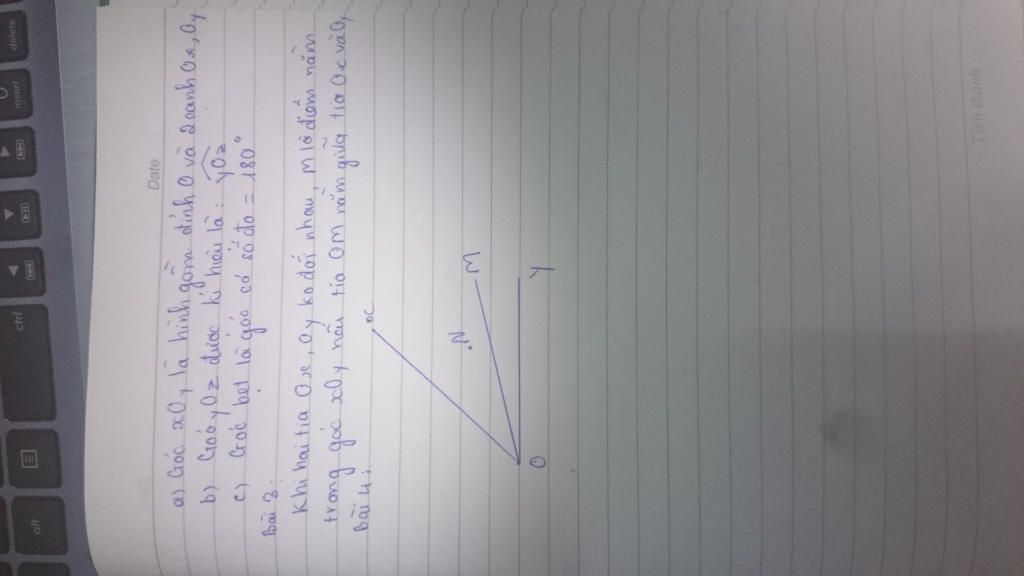 Date
a) Góc xOy là hình gồm đỉnh O và 2 cạnh Ox, Oy
b) Góc yOz được kí hiệu là: yOz
c) Góc bẹt là góc có số đo = 180°
Bài 3:
Khi hai tia Ox, Oy ko đối nhau, M là điểm nằm
trong góc xOy nếu tia OM nằm giữa tia Ox và Oy
Bài 4:
x
N
M
O
Y
Tiến thành
delete
insert
ctrl
alt